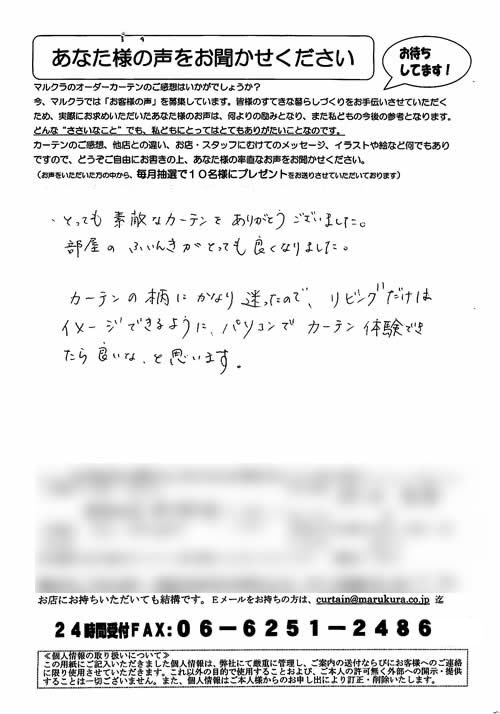 あなた様の声をお聞かせください
お待ち
してます!
マルクラのオーダーカーテンのご感想はいかがでしょうか?
今、マルクラでは「お客様の声」を募集しています。皆様のすてきな暮らしづくりをお手伝いさせていただく
ため、実際にお求めいただいたあなた様のお声は、何よりの励みとなり、また私どもの今後の参考となります。
どんな“ささいなこと”でも、私どもにとってはとてもありがたいことなのです。
カーテンのご感想、他店との違い、お店・スタッフにむけてのメッセージ、イラストや絵など何でもあり
ですので、どうぞご自由にお書きの上、あなた様の率直なお声をお聞かせください。
(お声をいただいた方の中から、毎月抽選で10名様にプレゼントをお送りさせていただいております)
、とっても素敵なカーテンをありがとうございました。
部屋のふいんきがとっても良くなりました。
カーテンの柄にかなり迷ったので、リビングだけは
イメージできるように、パソコンでカーテン体験でき
たら良いな、と思います。
お店にお持ちいただいても結構です。Eメールをお持ちの方は、curtain@marukura.co.jp 迄
24時間受付FAX:06-6251-2486
≪個人情報の取り扱いについて≫
この用紙にご記入いただきました個人情報は、弊社にて厳重に管理し、ご案内の送付ならびにお客様へのご連絡
に限り使用させていただきます。これ以外の目的で使用することおよび、ご本人の許可無く外部への開示・提供
することは一切ございません。また、個人情報はご本人様からのお申し出により訂正・削除いたします。